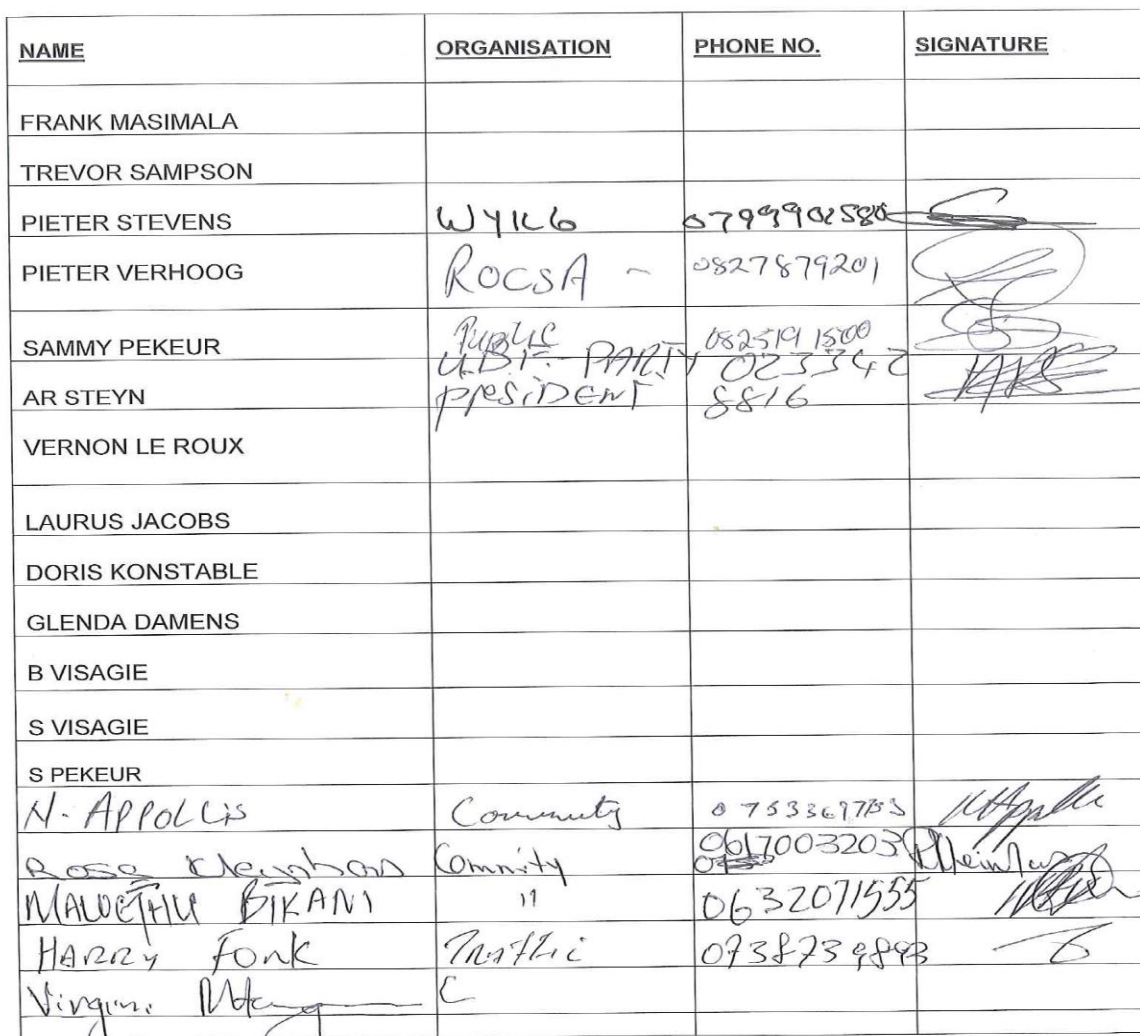 NAME ORGANISATION PHONE NO. SIGNATURE
FRANK MASIMALA
TREVOR SAMPSON
PIETER STEVENS WYK6
PIETER VERHOOG ROCSA - 0827879201
SAMMY PEKEUR PUBLIC 082519 1500
U.B.F. PARTY 023342
AR STEYN PRESIDENT 8816
VERNON LE ROUX
LAURUS JACOBS
DORIS KONSTABLE
GLENDA DAMENS
B VISAGIE
S VISAGIE
S PEKEUR
N. APPOLLIS Community
Rosa Comnity 0617003203
MAWETHU BIKANI 11 0632071555
HARRY FONK Traffic
C